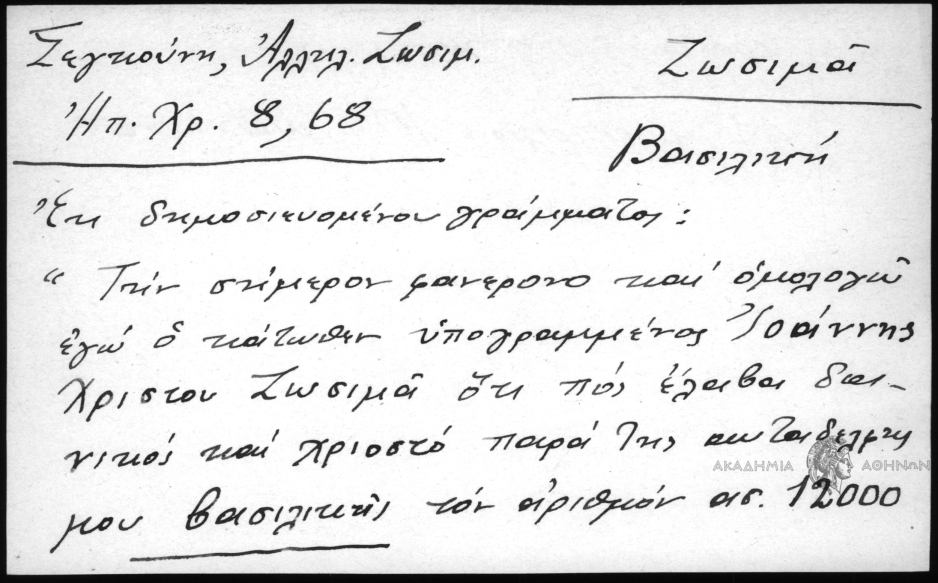 Σεγκούνη, Ἀλληλ. Ζωσιμ.
Ἠπ. Χρ. 8, 68
Ζωσιμᾶ
Βασιλική
Ἐκ δημοσιευομένου γράμματος:
“ Τήν σήμερον φανερονο καί ὁμολογῶ
ἐγώ ὁ κάτωθεν ὑπογραμμένος Ἰοάννης
Χρίστου Ζωσιμᾶ ὅτι πός ἔλαβα δα-
νικός καί χριοστό παρά της
ΑΚΑΔΗΜΙΑ ΑΘΗΝΩΝ
μου Βασιλικῆς τόν ἀριθμόν ασ. 12000